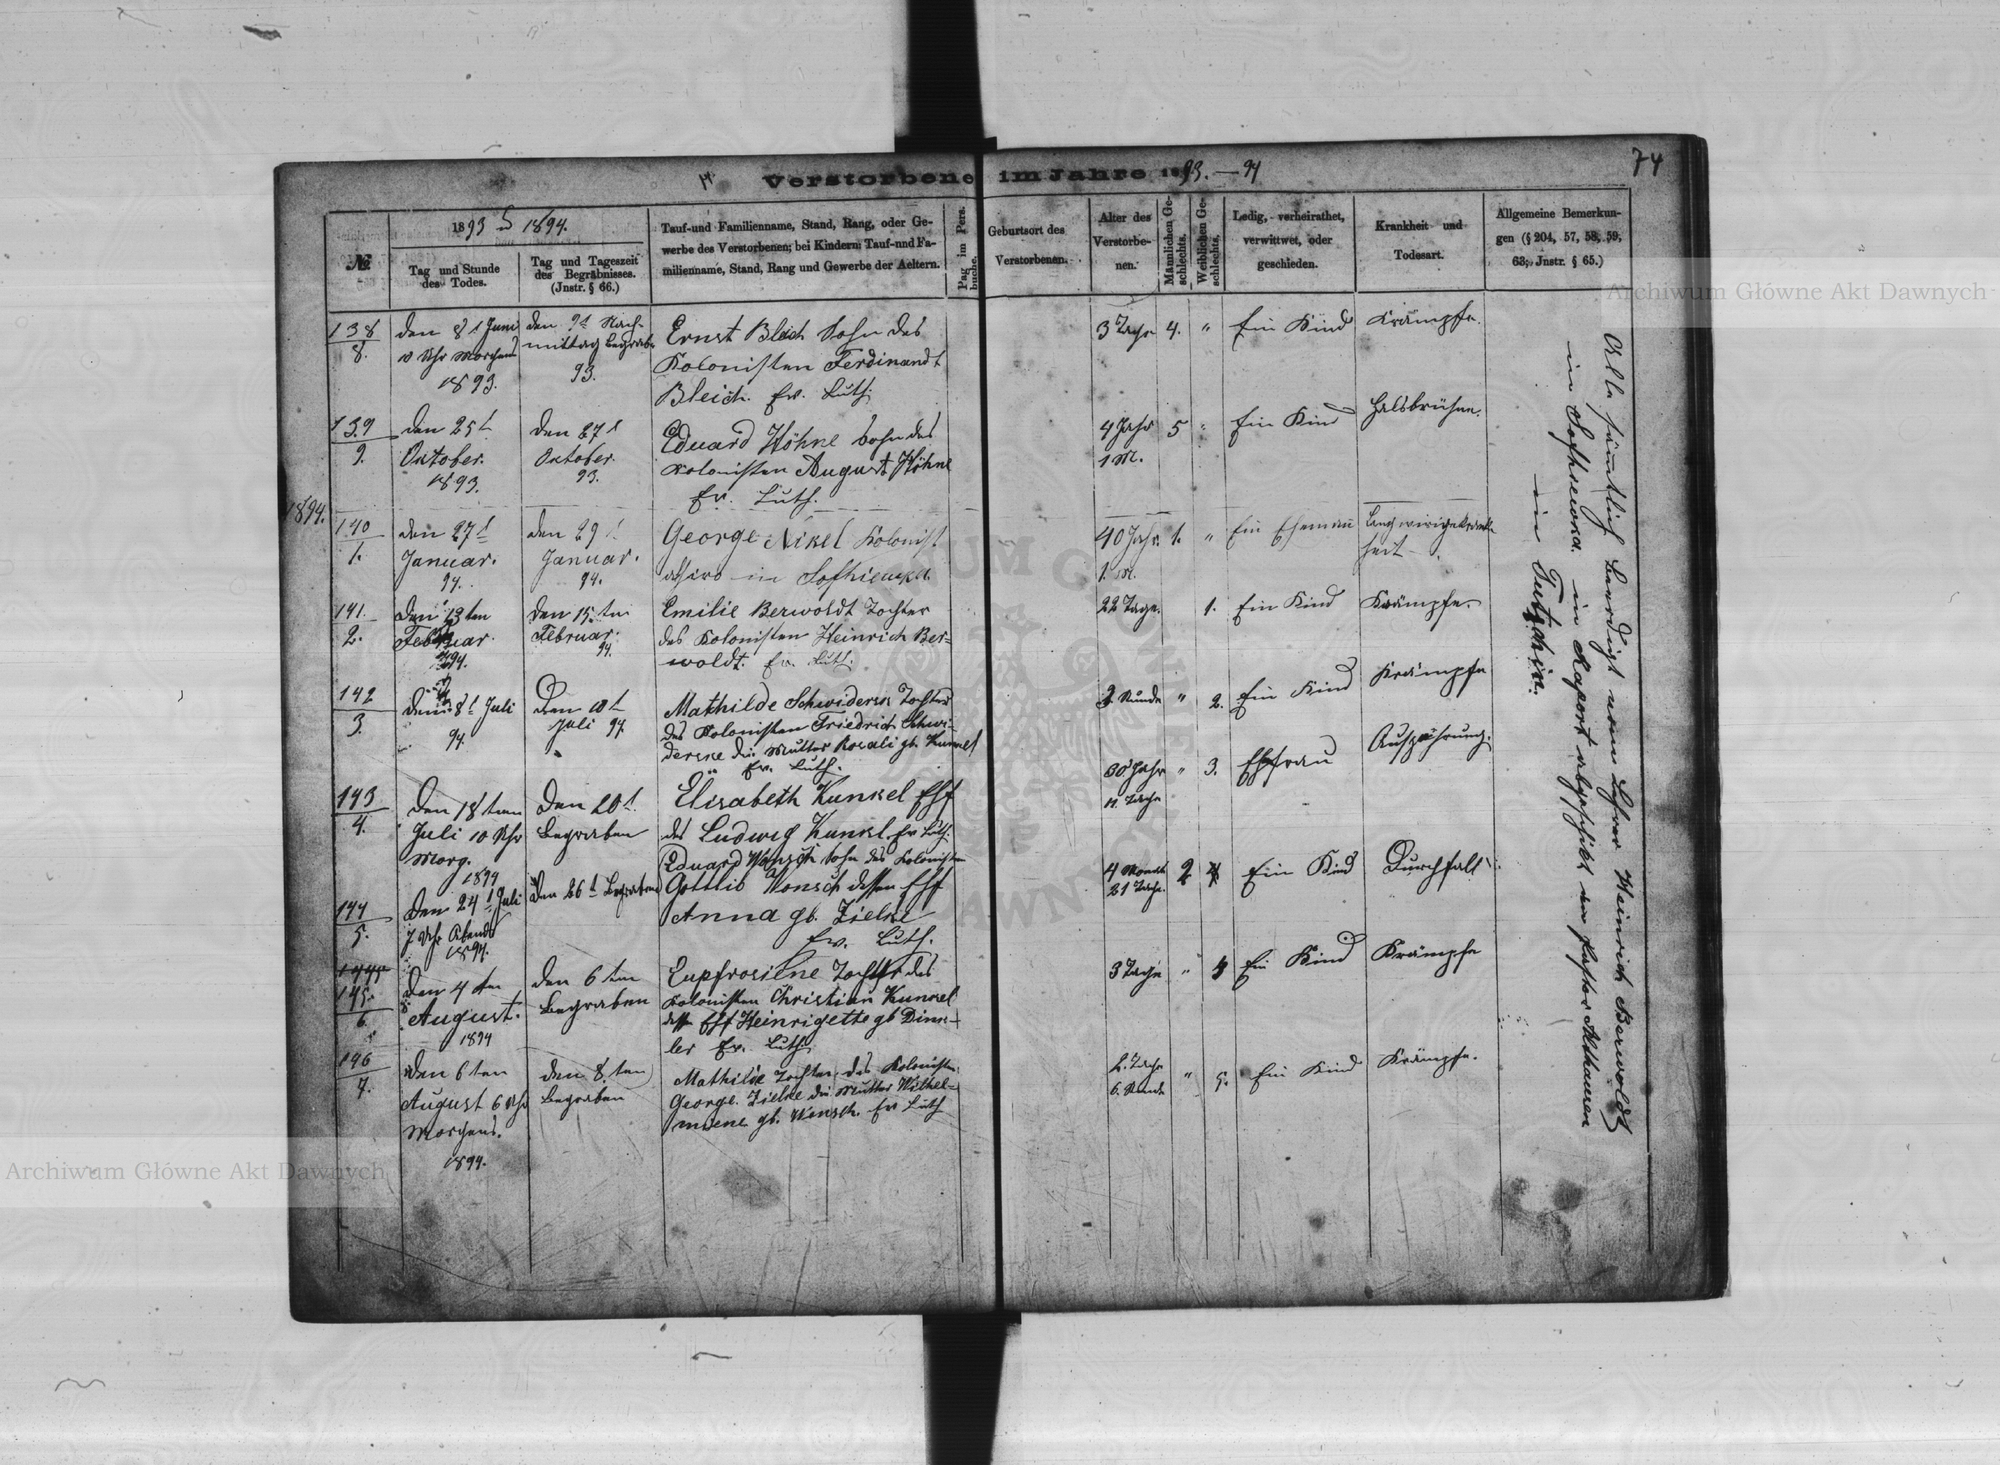 74
Verstorbene im Jahre 1893. — 94
№
1893 1894.
Tag und Stunde des Todes.
Tag und Tageszeit des Begräbnisses. (Jnstr. § 66.)
Tauf-und Familienname, Stand, Rang, oder Ge-
werbe des Verstorbenen; bei Kindern: Tauf-und Fa-
milienname, Stand, Rang und Gewerbe der Aeltern.
Pag im Pers. buche.
Geburtsort des Verstorbenen.
Alter des Verstorbe-nen.
Männlichen Ge-schlechts.
Weiblichen Ge-schlechts.
Ledig, verheirathet, verwittwet, oder geschieden.
Krankheit und Todesart.
Allgemeine Bemerkun-
gen (§ 204, 57, 58, 59,
63; Jnstr. § 65.)
138
8.
den 8t Juni
10 Uhr Morgens
1893.
den 9t Nach-
mittag
93.
Ernst Bleich Sohn des
Kolonisten Ferdinandt
Bleich. Ev. Luth.
3 Tage
4.
"
Ein Kind
Krämpfe.
139
9.
den 25t
Oktober.
1893.
den 27t
Oktober.
93.
Eduard Höhne Sohn des
Kolonisten August Höhne
Ev. Luth.
4 Jahr
1 M.
5
"
Ein Kind
Halsbrühne.
1894.
140
1.
den 27t
Januar.
94.
den 29t
Januar.
94.
George Nikel Kolonist
in Sofhiewka
40 Jahr.
1. M.
1.
"
Ein Ehemann
heit
141.
2.
den 13ten
Februar.
94.
den 15.ten
Februar.
94.
Emilie Berwoldt Tochter
des Kolonisten Heinrich Ber-
woldt. Ev. Luth.
22 Tage.
1.
Ein Kind
Krämpfe.
142
3.
den 8t Juli
94.
Den 10t
Juli 94
Mathilde Schwiderske Tochter
des Kolonisten Friedrich Schwi-
derske die Mutter Rosali gb. Kunkel
Ev. Luth.
Stunde
"
2.
Ein Kind
Krämpfe
143
4.
Den 18ten
Juli 10 Uhr
Morg.
1894
Den 20t.
Begraben
Elisabeth Kunkel Ehf
des Ludwig Kunkel Ev Luth.
30 Jahr
11. Tage
"
3.
Ehfrau
144
5.
Den 24t Juli
7 Uhr Abends
1894.
Den 26t Begraben
Eduard Wonsch Sohn des Kolonisten
Gottlib Wonsch dessen Ehf
Anna gb. Zielke
Ev. Luth.
4 Monath
21 Tage.
2
Ein Kind
Durchfall
145.
6.
Den 4ten
August.
1894
den 6ten
Begraben
Eupfrosiene Tochter des
Kolonisten Christian Kunkel
dessen Ehf Heinrigette gb Dins-
ler Ev. Luth.
3 Tage
"
4
Ein Kind
Krämpfe
146
7.
den 6ten
August 6 Uhr
Morgens.
1894.
den 8.ten
Begraben
Mathilde Tochter des Kolonisten
George Zielke die Mutter Wilhel-
miene gb. Wensch. Ev Luth
2. Tage
6. Stunde
"
5.
Ein Kind
Krämpfe.
Alle sämtlich beerdigt vom Lehrer Heinrich Berwoldt
in Sofhiewka. in Raport abgeschikt an Pastor Althausen
in Tutschin.
Archiwum Główne Akt Dawnych
Archiwum Główne Akt Dawnych